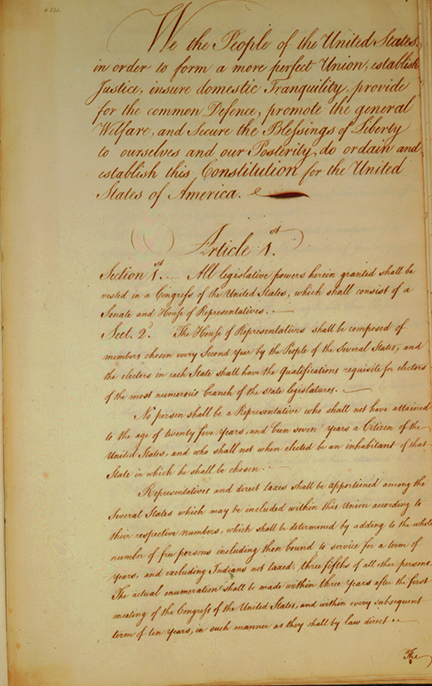 We the People of the United States,
in order to form a more perfect Union, establish
Justice, insure domestic Tranquility, provide
for the common Defence, promote the general
Welfare, and Secure the Blessings of Liberty
to ourselves and our Posterity, do ordain and
establish this Constitution for the United
States of America.
Article 1st.
Section 1st. All legislative powers herein granted shall be
vested in a Congress of the United States, which shall consist of a
Senate and House of Representatives.
Sect. 2. The House of Representatives shall be composed of
members chosen every Second year by the People of the Several States, and
the electors in each State shall have the Qualifications requisite for electors
of the most numerous branch of the state legislatures.
No person shall be a Representative who shall not have attained
to the age of twenty five years, and been seven years a Citizen of the
United States, and who shall not when elected be an inhabitant of that
State in which he shall be chosen.
Representatives and direct taxes shall be apportioned among the
Several States which may be included within this Union according to
their respective numbers, which shall be determined by adding to the whole
number of free persons including those bound to service for a term of
years, and excluding Indians not taxed, three fifths of all other persons.
The actual enumeration shall be made within three years after the first
meeting of the Congress of the United States, and within every subsequent
term of ten years, in such manner as they shall by law direct.
The